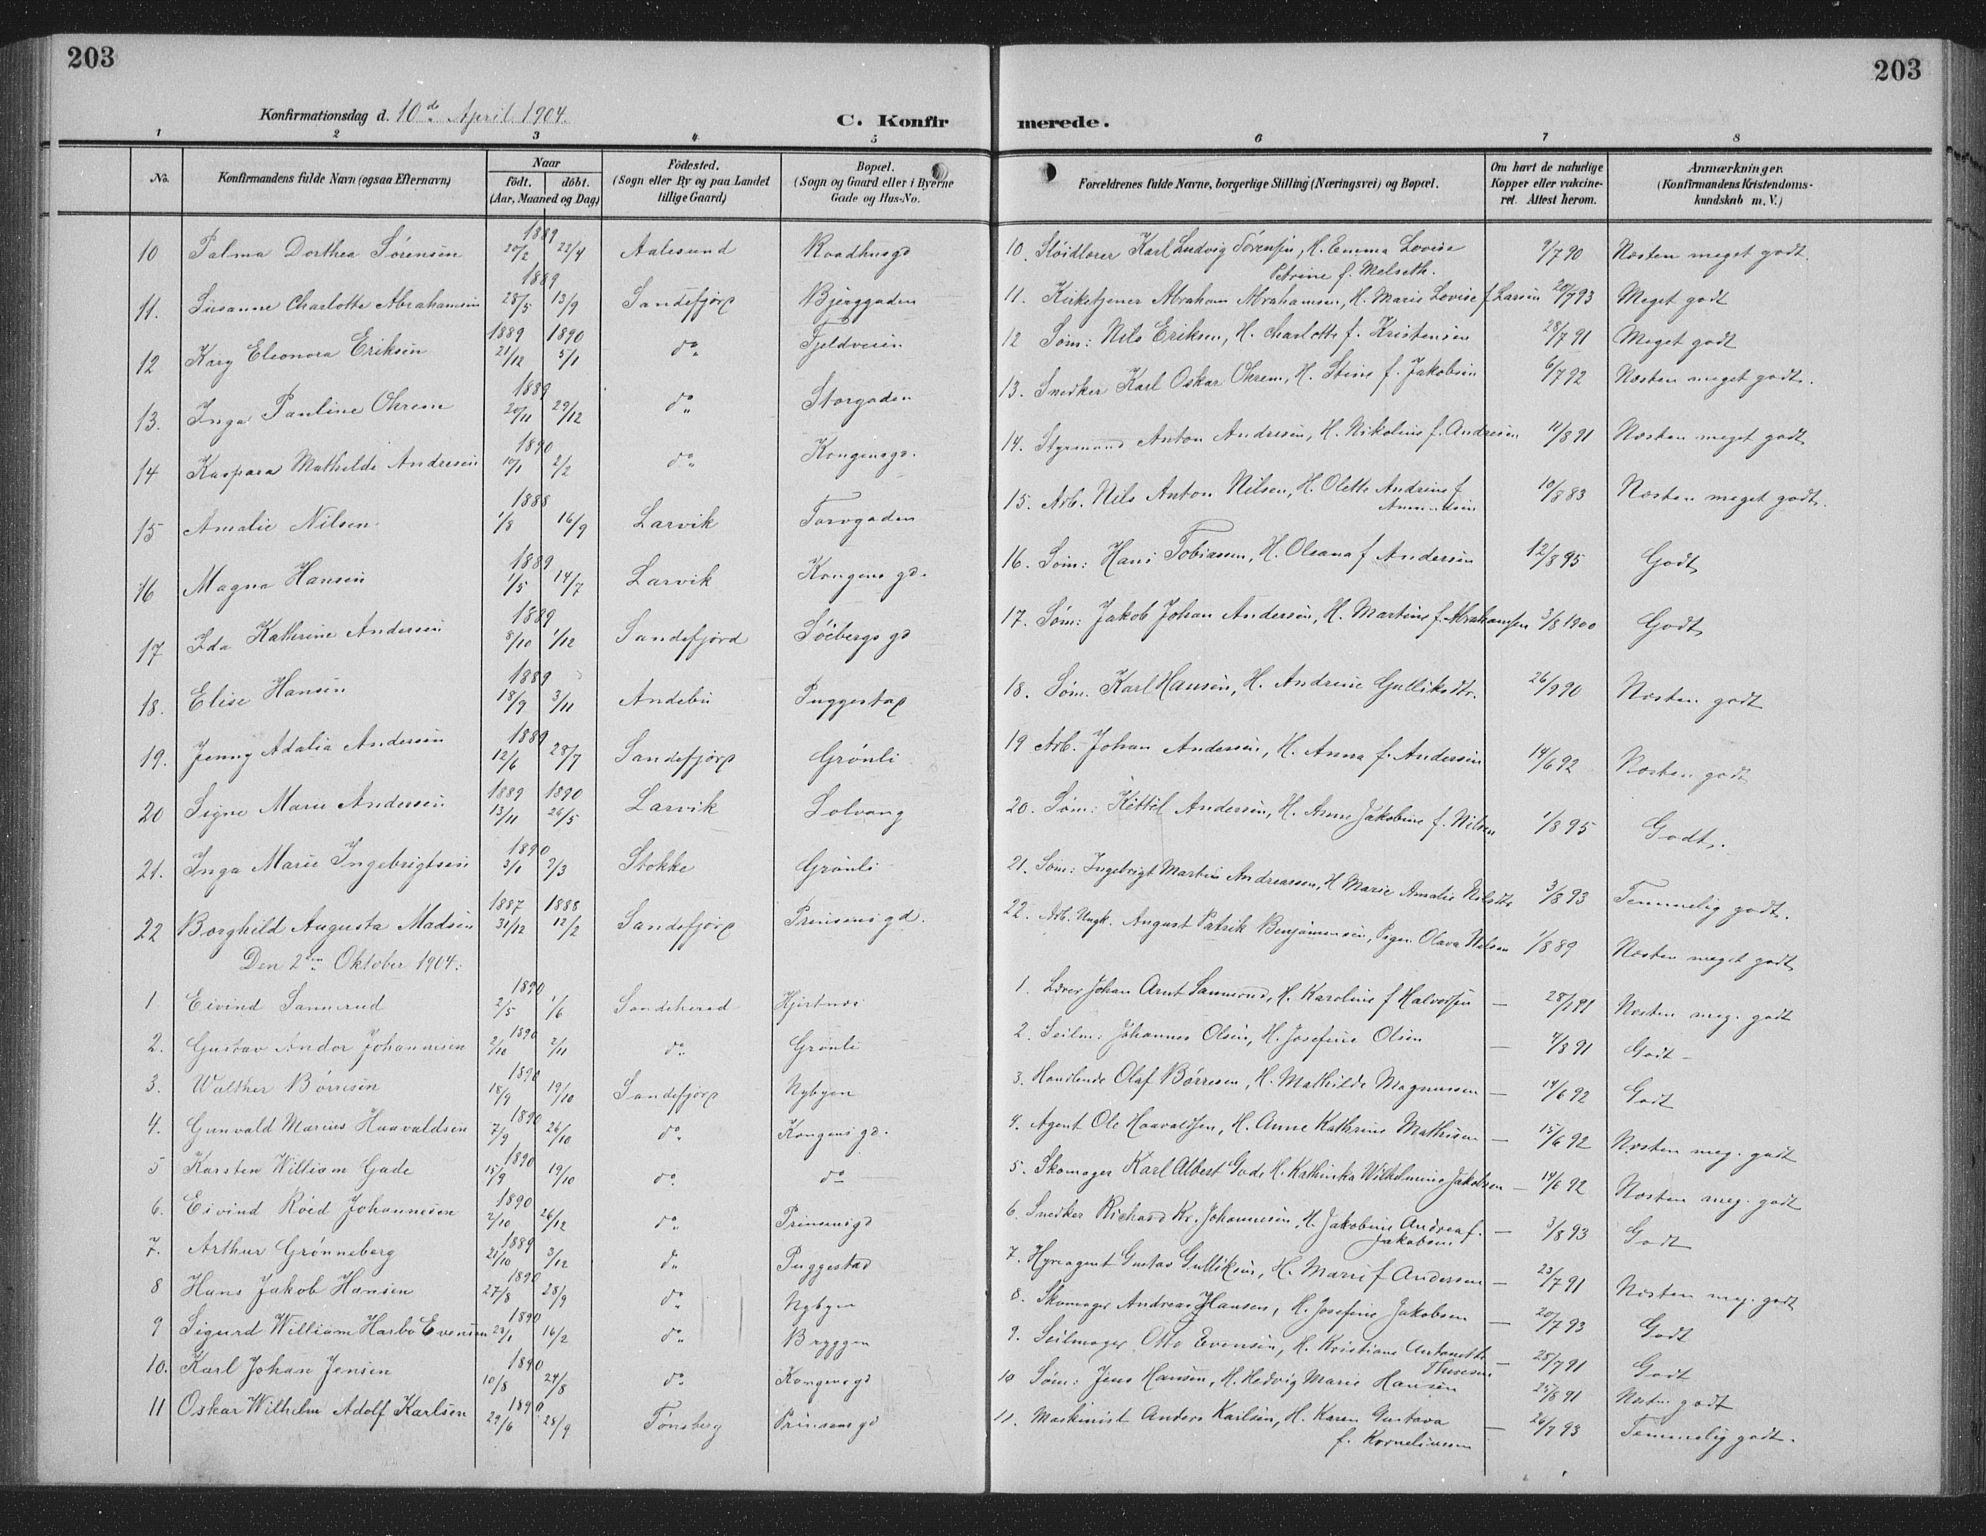 203
203
Konfirmationsdag d. 10de April 1904.
C. Konfirmerede.
1 2 3 4 5 6 7 8
No. Konfirmandens fulde Navn (ogsaa Efternavn) Naar født. døbt. (Aar, Maaned og Dag) Fødested. (Sogn eller By og paa Landet tillige Gaard) Bopæl. (Sogn og Gaard eller i Byerne Gade og Hus-No. Forældrenes fulde Navne, borgerlige Stilling (Næringsvei) og Bopæl. Om havt de naturlige Kopper eller vakcineret. Attest herom. Anmærkninger. (Konfirmandens Kristendomskundskab m. V.)
10 Palma Dorthea Sørensen 1889 20/2 22/4 Aalesund Raadhusgd 10. Karl Ludvig Sørensen, H. Emma Lovise Petrine f. Melseth. 9/7 90 Næsten meget godt.
11. Susanne Charlotte Abrahamsen 1889 28/5 13/9 Sandefjord Bjerggaden 11. Kirketjener Abraham Abrahamsen, H. Marie Lovise f Larsen 20/7 93 Meget godt
12 Kary Eleonora Eriksen 1889 21/12 1890 5/1 do Fjeldveien 12 Søm: Nils Eriksen, H. Charlotte f. Kristensen 28/7 91 Meget godt
13. Inga Pauline Ohrem 1889 20/11 29/12 do Storgaden 13. Snedker Karl Oskar Ohrem, H. Stine f. Jakobsen 6/7 92 Næsten meget godt.
14 Kaspara Mathilde Andresen 1890 10/1 2/2 do Kongensgd. 14. Styrmand Anton Andresen, H. Nikoline f. Andresen 11/8 91 Næsten meget godt
15 Amalie Nilsen 1888 1/8 16/9 Larvik Torvgaden 15. Arb. Nils Anton Nilsen, H. Olette Andrine f 10/8 83 Næsten meget godt.
16 Magna Hansen 1889 1/5 14/7 Larvik Kongensgd. 16. Søm: Hans Tobiassen, H. Oleana f Andersen 12/8 95 Godt
17 Ida Kathrine Andersen 1889 8/10 1/12 Sandefjord Søebergsgd 17. Søm: Jakob Johan Andersen, H. Martine f. Abrahamsen 3/8 1900 Godt
18. Elise Hansen 1889 18/9 3/11 Andebu Puggestad 18. Søm. Karl Hansen, H. Andrine Gulliksdtr. 26/9 90 Næsten godt
19. Jenny Adalia Andersen 1889 12/6 28/7 Sandefjord Grønli 19 Arb. Johan Andersen, H. Anna f. Andersen 14/6 92 Næsten godt
20 Signe Marie Andersen 1889 13/11 1890 26/5 Larvik Solvang 20. Søm: Kittil Andersen, H. Anne Jakobine f. Nilsen 1/8 95 Godt.
21. Inga Marie Ingebrigtsen 1890 3/1 2/3 Stokke Grønli 21. Søm: Ingebrigt Martin Andreassen, H Marie Amalie Nilsdtr 3/8 93 Temmelig godt.
22 Borghild Augusta Madsen 1887 31/12 1888 12/2 Sandefjord Prinsensgd. 22. Arb. Ungk. August Patrik Benjaminsen, Pigen Olava Nilsen 1/8 89 Næsten meget godt
Den 2den Oktober 1904.
1. Eivind Sannerud 1890 2/5 1/6 Sandeherred Hjertnes 1. Lærer Johan Arnt Sannerud, H. Karoline f Halvorsen — 28/1 91 Næsten meg. godt
2. Gustav Andor Johannesen 1890 2/10 2/11 do Grønli 2. Seilm: Johannes Olsen, H. Josefine Olsen — 4/8 91 Godt
3. Walther Børresen 1890 18/9 19/10 Sandefjord Nybyen 3. Handlende Olaf Børresen, H. Mathilde Magnussen — 14/6 92 Godt
4. Gunvald Marius Haavaldsen 1890 7/9 26/10 do Kongensgd. 4. Agent Ole Haavaldsen, H. Anne Kathrine Mathisen — 15/6 92 Næsten meg. godt
5 Karsten William Gade 1890 15/9 19/10 do do 5. Skomager Karl Albert Gade H. Kathinka Wilhelmine Jakobsen — 14/6 92 Næsten meg. godt
6. Eivind Røed Johannesen 1890 2/10 26/12 do Prinsensgd 6. Snedker Richard Kr. Johannesen, H. Jakobine Andrea f. Jakobsen — 3/8 93 Godt
7. Arthur Grønneberg 1889 21/10 3/12 do Puggestad 7. Hyreagent Gustav Gulliksen, H. Marie f Andersen — 23/7 91 Næsten meg. godt
8 Hans Jakob Hansen 1890 27/8 28/9 do Nybyen 8. Skomager Andreas Hansen, H. Josefine Jakobsen — 20/7 93 Godt
9 Sigurd William Harbo Evensen 1890 23/1 16/2 do Bryggen 9. Seilmager Otto Evensen, H. Kristiane Antonette Thoresen — 28/7 91 Godt
10. Karl Johan Jensen 1890 10/8 24/8 do Kongensgd 10 Søm: Jens Hansen, H. Hedvig Marie Hansen 25/8 91 Næsten godt
11 Oskar Wilhelm Adolf Karlsen 1890 22/6 28/9 Tønsberg Prinsensgd 11. Maskinist Anders Karlsen, H. Karen Gustava f. Korneliussen — 26/7 93 Temmelig godt.